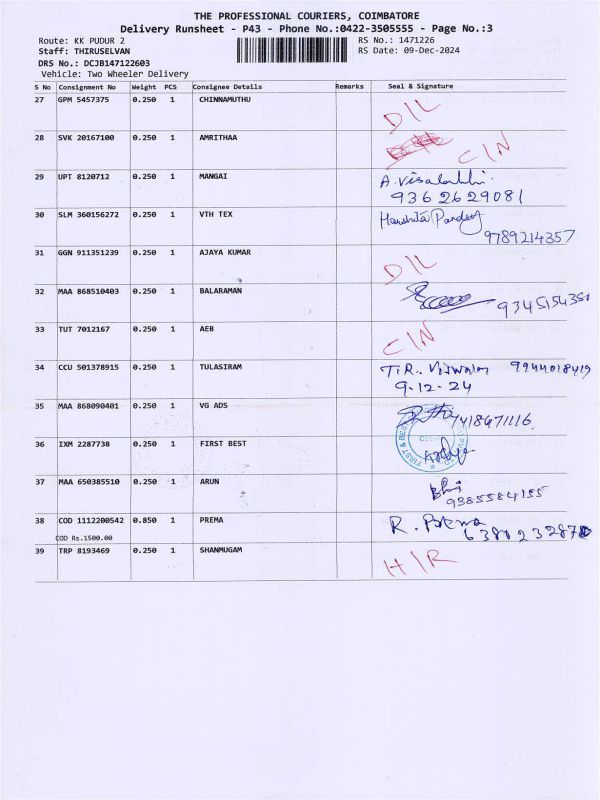 THE PROFESSIONAL COURIERS, COIMBATORE
Delivery Runsheet - P43 - Phone No.:0422-3505555 - Page No.:3
Route: KK PUDUR 2 RS No.: 1471226
Staff: THIRUSELVAN RS Date: 09-Dec-2024
DRS No.: DCJB147122603
Vehicle: Two Wheeler Delivery
S No Consignment No Weight PCS Consignee Details Remarks Seal & Signature
27 GPM 5457375 0.250 1 CHINNAMUTHU D/L
28 SVK 20167100 0.250 1 AMRITHAA C/N
29 UPT 8120712 0.250 1 MANGAI A. Visalakhi.
9362629081
30 SLM 360156272 0.250 1 VTH TEX Harshita Pandey
9789214357
31 GGN 911351239 0.250 1 AJAYA KUMAR D/L
32 MAA 868510403 0.250 1 BALARAMAN
33 TUT 7012167 0.250 1 AEB C/N
34 CCU 501378915 0.250 1 TULASIRAM 9944018419
9-12-24
35 MAA 868090401 0.250 1 VG ADS
36 IXM 2287738 0.250 1 FIRST BEST
37 MAA 650385510 0.250 1 ARUN
38 COD 1112200542 0.850 1 PREMA R. Prema
COD Rs.1500.00
39 TRP 8193469 0.250 1 SHANMUGAM H/R